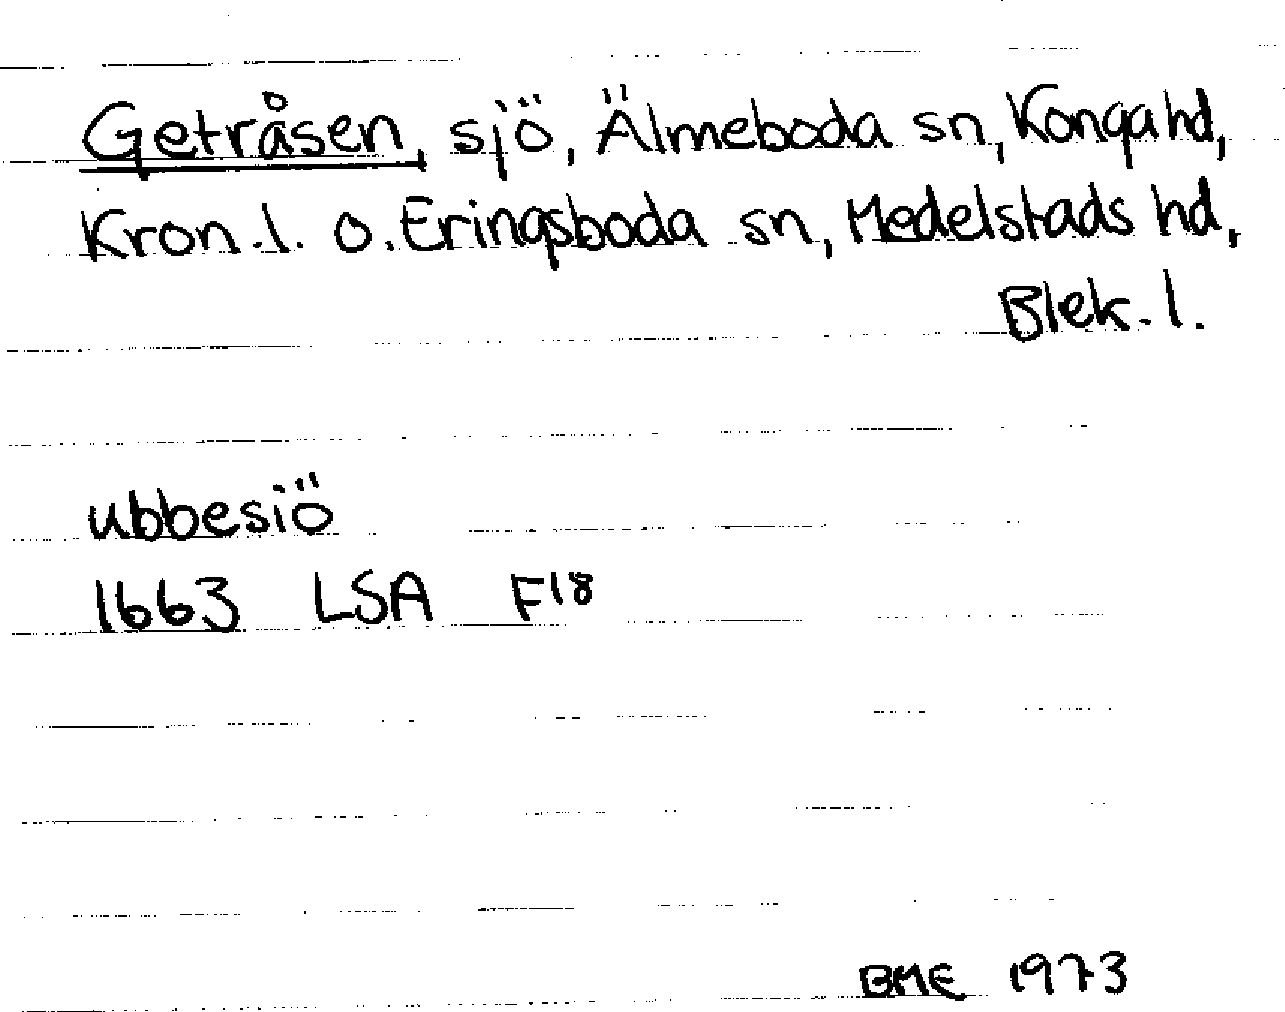 Getråsen, sjö, Älmeboda sn, Konga hd,
Kron. l. o. Eringsboda sn, Medelstads hd,
Blek. l.
ubbesiö
1663 LSA F18
BME 1973